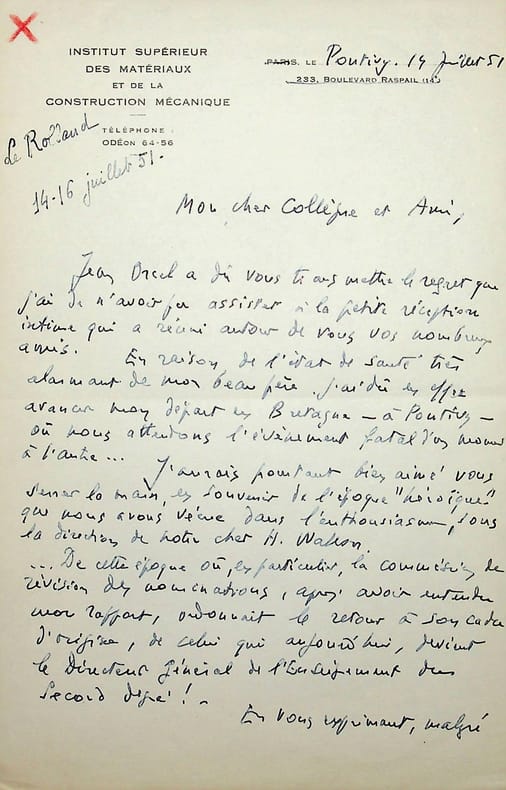 INSTITUT SUPÉRIEUR
DES MATÉRIAUX
ET DE LA
CONSTRUCTION MÉCANIQUE
TÉLÉPHONE :
ODÉON 64-56
PARIS, LE Pontivy. 14 Juillet 51
233, BOULEVARD RASPAIL (14e)
Le Rolland
14-16 juillet 51.
Mon cher Collègue et Ami,
Jean Orcel a dû vous transmettre le regret que
j'ai de n'avoir pu assister à la petite réception
intime qui a réuni autour de vous vos nombreux
amis. En raison de l'état de santé très
alarmant de mon beau père, j'ai dû en effet
avancer mon départ en Bretagne — à Pontivy —
où nous attendons l'évènement fatal d'un moment
à l'autre... J'aurais pourtant bien aimé vous
serrer la main, en souvenir de l'époque "héroïque"
que nous avons vécue dans l'enthousiasme, sous
la direction de notre cher H. Wallon.
... De cette époque où, en particulier, la commission de
révision des nominations, après avoir entendu
mon rapport, ordonnait le retour à son cadre
d'origine, de celui qui aujourd'hui, devient
le Directeur Général de l'Enseignement du
Second degré ! -
En vous exprimant, malgré